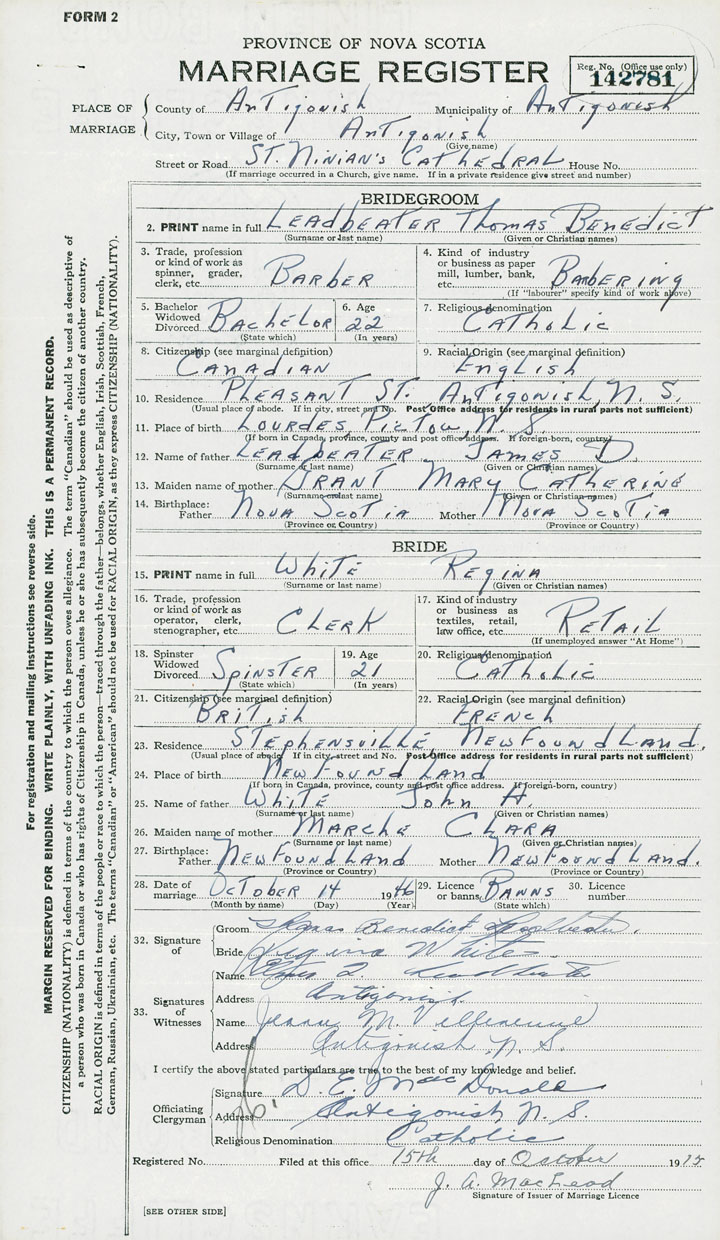 FORM 2
PROVINCE OF NOVA SCOTIA
MARRIAGE REGISTER
Reg. No. (Office use only)
142781
PLACE OF MARRIAGE
County of AnTigonish Municipality of AnTigonish
City, Town or Village of AnTigonish
(Give name)
Street or Road ST. Ninian's CaThedral House No.
(If marriage occurred in a Church, give name. If in a private residence give street and number)
BRIDEGROOM
2. PRINT name in full LeadbeaTer Thomas BenedicT
(Surname or last name) (Given or Christian names)
3. Trade, profession or kind of work as spinner, grader, clerk, etc. Barber
4. Kind of industry or business as paper mill, lumber, bank, etc. Barbering
(If "labourer" specify kind of work above)
5. Bachelor Widowed Divorced Bachelor
(State which)
6. Age 22
(In years)
7. Religious denomination CaTholic
8. Citizenship (see marginal definition)
Canadian
9. Racial Origin (see marginal definition)
English
10. Residence PleasanT ST. AnTigonish, N. S.
(Usual place of abode. If in city, street and No. Post Office address for residents in rural parts not sufficient)
11. Place of birth Lourdes, PicTou, N. S.
(If born in Canada, province, county and post office address. If foreign-born, country)
12. Name of father LeadbeaTer James D.
(Surname or last name) (Given or Christian names)
13. Maiden name of mother GranT Mary CaTherine
(Surname or last name) (Given or Christian names)
14. Birthplace: Father Nova ScoTia Mother Nova ScoTia
(Province or Country) (Province or Country)
BRIDE
15. PRINT name in full WhiTe Regina
(Surname or last name) (Given or Christian names)
16. Trade, profession or kind of work as operator, clerk, stenographer, etc. Clerk
17. Kind of industry or business as textiles, retail, law office, etc. ReTail
(If unemployed answer "At Home")
18. Spinster Widowed Divorced SpinsTer
(State which)
19. Age 21
(In years)
20. Religious denomination CaTholic
21. Citizenship (see marginal definition)
BriTish
22. Racial Origin (see marginal definition)
French
23. Residence STephensville, Newfoundland.
(Usual place of abode. If in city, street and No. Post Office address for residents in rural parts not sufficient)
24. Place of birth Newfoundland
(If born in Canada, province, county and post office address. If foreign-born, country)
25. Name of father WhiTe John H.
(Surname or last name) (Given or Christian names)
26. Maiden name of mother Marche Clara
(Surname or last name) (Given or Christian names)
27. Birthplace: Father Newfoundland Mother Newfoundland.
(Province or Country) (Province or Country)
28. Date of marriage October 14 1946
(Month by name) (Day) (Year)
29. Licence or banns Banns
(State which)
30. Licence number
32. Signature of
Groom Thomas Benedict Leadbeater.
Bride Regina White.
33. Signatures of Witnesses
Name Leadbeater
Address Antigonish.
Name M. Villeneuve
Address Antigonish, N. S.
I certify the above stated particulars are true to the best of my knowledge and belief.
Officiating Clergyman
Signature D. E. MacDonald
Address Antigonish N. S.
Religious Denomination Catholic
Registered No. Filed at this office 15th day of October 19
J. A. MacLeod
Signature of Issuer of Marriage Licence
[SEE OTHER SIDE]
For registration and mailing instructions see reverse side.
MARGIN RESERVED FOR BINDING. WRITE PLAINLY, WITH UNFADING INK. THIS IS A PERMANENT RECORD.
CITIZENSHIP (NATIONALITY) is defined in terms of the country to which the person owes allegiance. The term "Canadian" should be used as descriptive of
a person who was born in Canada or who has rights of Citizenship in Canada, unless he or she has subsequently become the citizen of another country.
RACIAL ORIGIN is defined in terms of the people or race to which the person—traced through the father—belongs, whether English, Irish, Scottish, French,
German, Russian, Ukrainian, etc. The terms "Canadian" or "American" should not be used for RACIAL ORIGIN, as they express CITIZENSHIP (NATIONALITY).